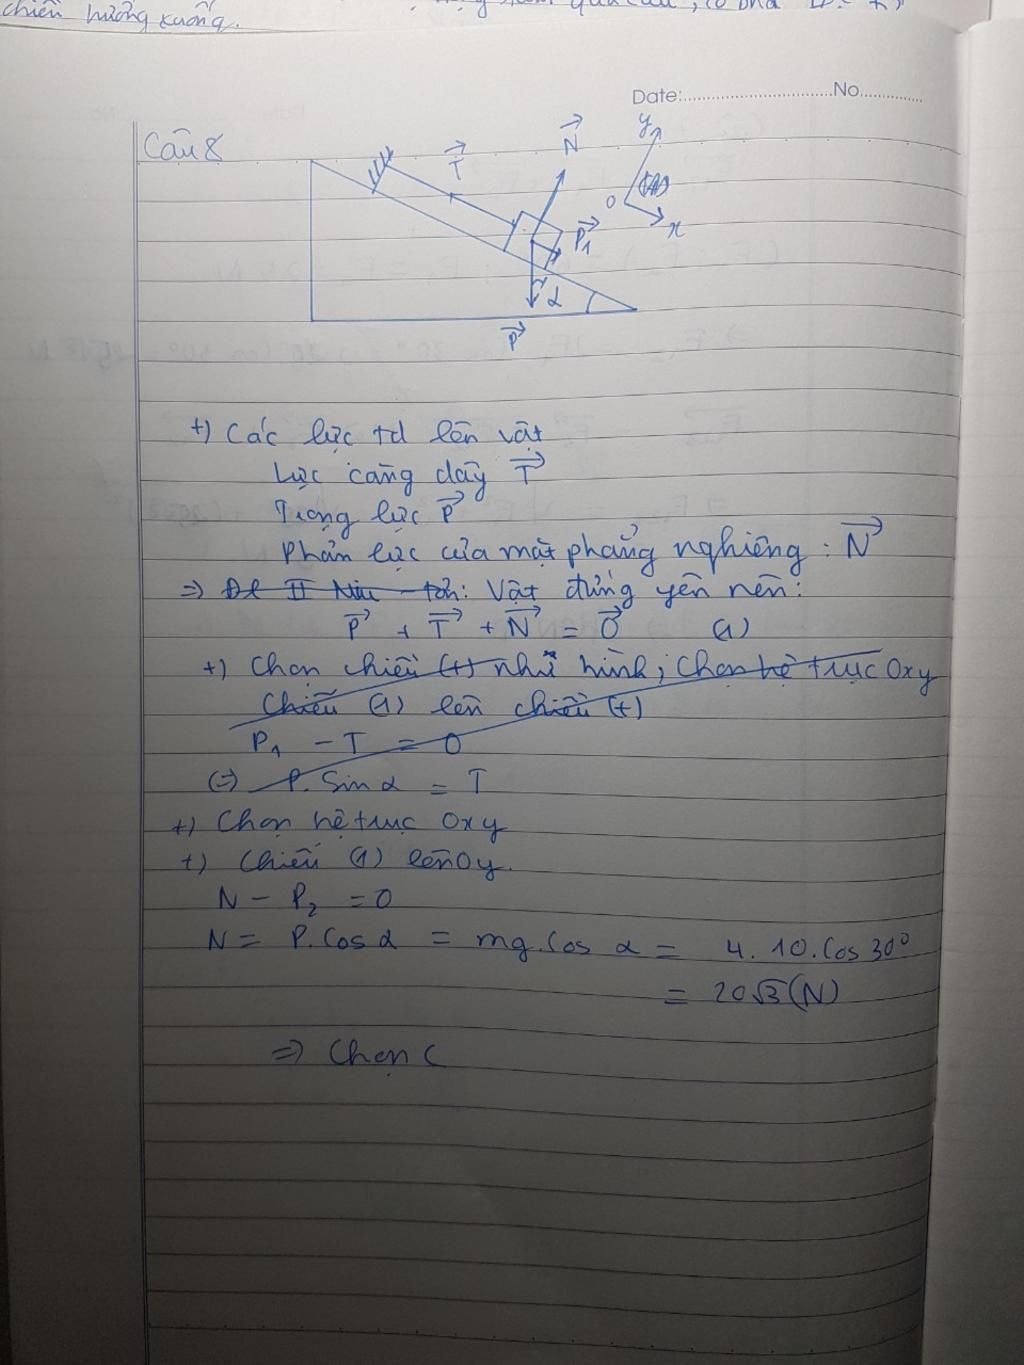 chiều hướng xuống.
Date:..............................No..............
Câu 8
T
N
y
O
x
P₁
α
P
+) Các lực td lên vật
Lực căng dây T
Trọng lực P
Phản lực của mặt phẳng nghiêng : N
=> Đl II Niu - tơn: Vật đứng yên nên:
P + T + N = 0 (1)
+) Chọn chiều (+) như hình; Chọn hệ trục Oxy
Chiếu (1) lên chiều (+)
P₁ - T = 0
(=) P. Sin α = T
+) Chọn hệ trục Oxy
+) Chiếu (1) lên Oy.
N - P₂ = 0
N = P. Cos α = mg. Cos α = 4. 10. Cos 30°
= 20√3 (N)
=> Chọn C